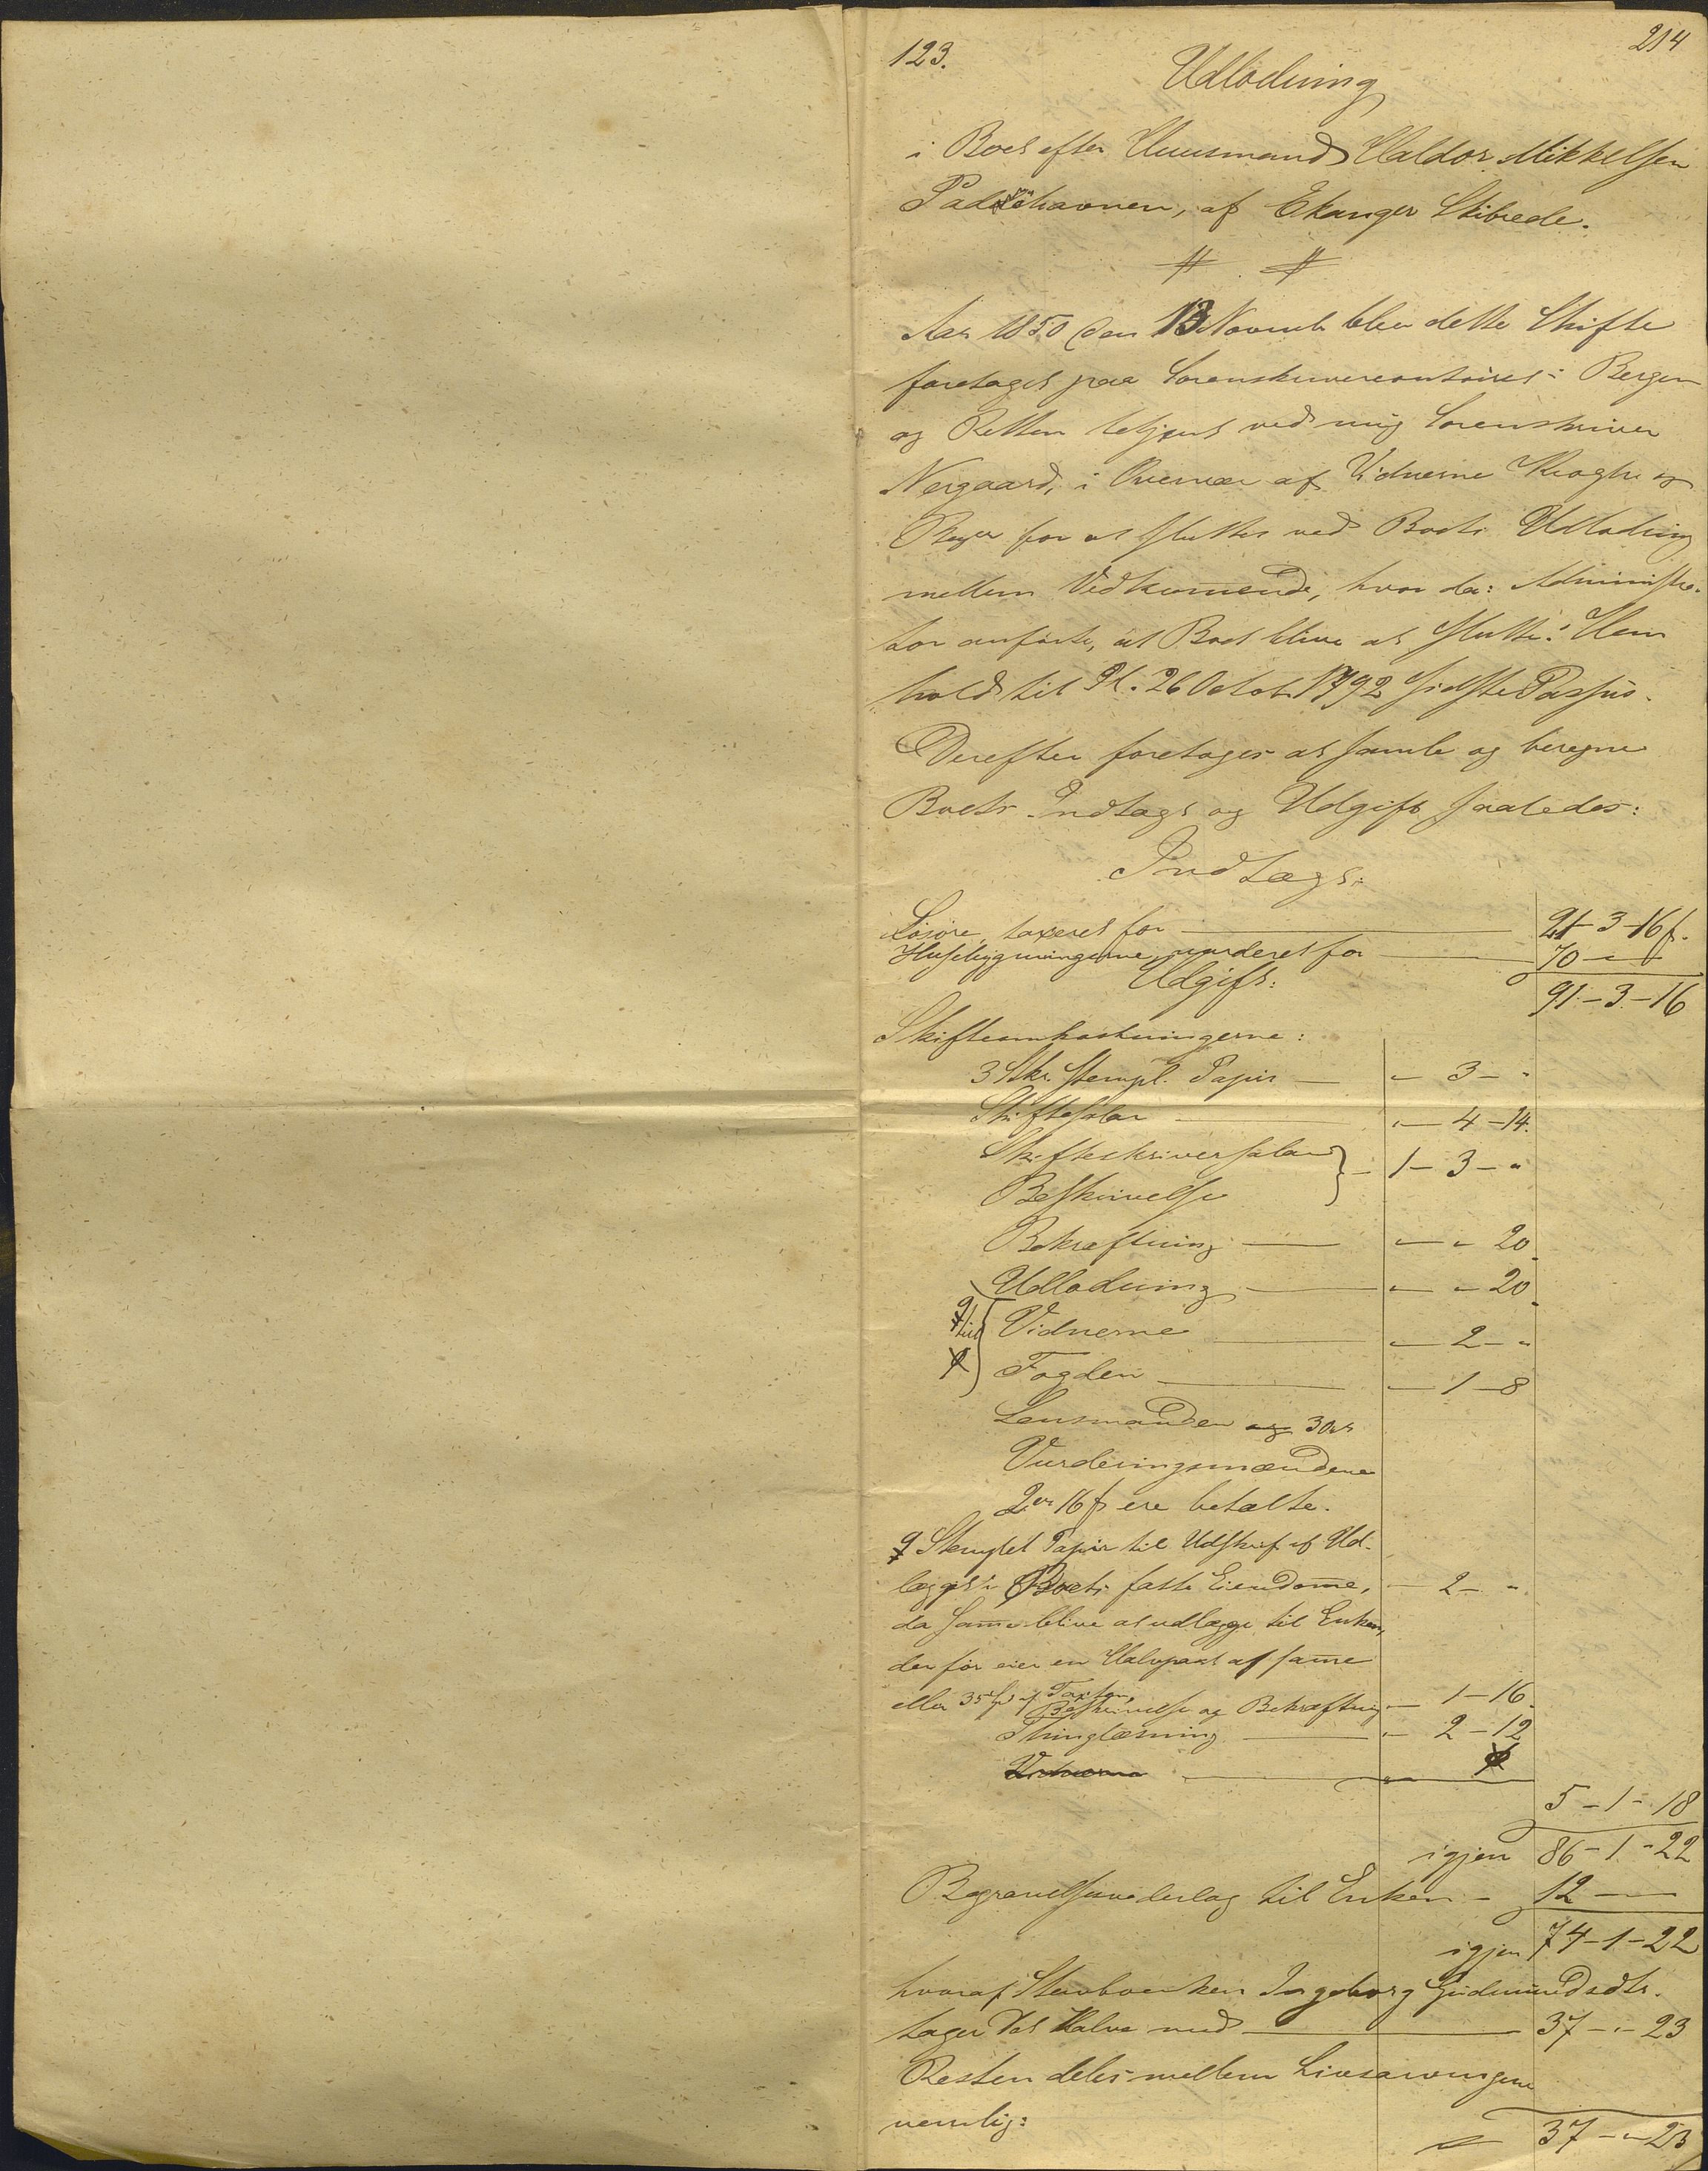 123.
214
Udlodning
i Boet efter Huusmand Haldor Mikkelsen
Padøehavnen, af Ekanger Skibrede.
Aar 1850 den 13 Novemb blev dette Skifte
foretaget paa Sorenskrivercontoiret i Bergen
og Retten betjent ved mig Sorenskriver
Nergaard, i Overvær af Vidnerne Krogh og
for at sluttes ved Boets Udlodning
mellem Vedkommende, hvor da: Administra-
tor anførte, at Boet bliver at slutte i Hen
hold til Pl. 26 Octob 1792 sidste Passus.
Derefter foretoges at samle og beregne
Boets Indtægt og Udgift saaledes:
Indtægt:
Løsøre, taxeret for 21-3-16 s.
Husebygningerne, vurderet for 70 - "
91-3-16
Udgift:
Skifteomkostningerne:
3 Stkr. stempl. Papir — " 3 - "
Skiftesalar " - 4 - 14.
Skifteskriversalar }
Beskrivelse } 1 - 3 - "
Bekræftning — " - " 20
Udlodning — " - " 20
Vidnerne — " 2 - "
Fogden — " 1 - 8
Lensmanden og 3 Ort
Vurderingsmændene
2 ort 16 s ere betalte.
Stemplet Papir til Udskrift af Ud-
lægget i Boets faste Eiendomme, - 2 - "
da samme bliver at udlægge til Enken,
der før eier en Halvpart af samme
eller 35 Spd af Taxten,
Beskrivelse og Bekræftning - 1 - 16
Thinglæsning — " 2 - 12
Vidnerne
5 - 1 - 18
igjen 86 - 1 - 22
Begravelsesvederlag til Enken - 12 —
igjen 74 - 1 - 22
hvoraf Stervboenken Ingeborg Gudmundsdtr.
tager det Halve med — 37 - " - 23
Resten deles mellem Livsarvingene
nemlig: 37 - " - 23